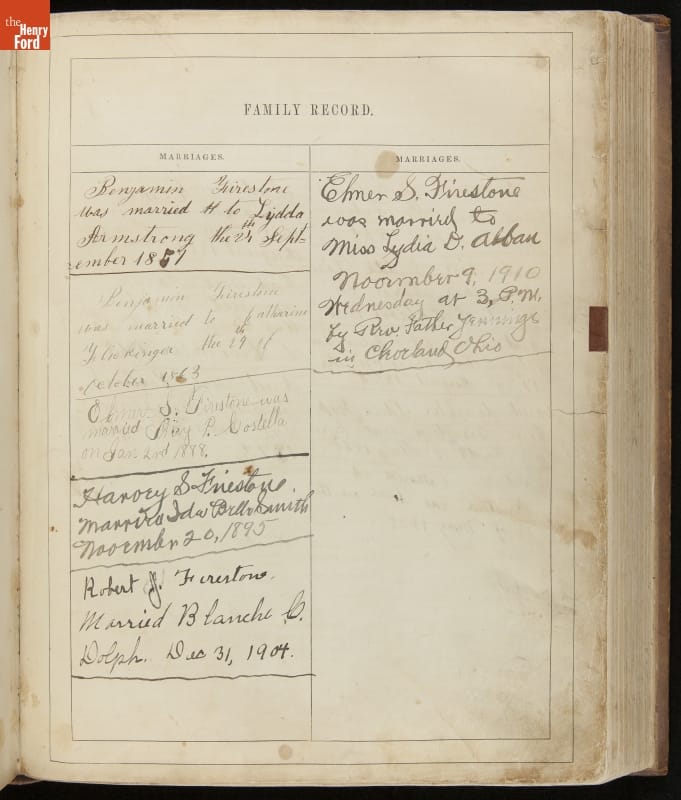 the
Henry
Ford
FAMILY RECORD.
MARRIAGES.
Benjamin Firestone
was married to Lydda
Armstrong the 24th Sept-
ember 1857
Benjamin Firestone
was married to Katharine
Flickinger the 29th of
October 1863
Elmer S. Firestone was
married May P. Costella
on Jan 2nd 1898.
Harvey S Firestone
Married Ida Belle Smith
November 20, 1895
Robert J. Firestone.
Married Blanche C.
Dolph. Dec 31, 1904.
MARRIAGES.
Elmer S. Firestone
was married to
Miss Lydia D. Alban
November 9, 1910
Wednesday at 3, P.M.
by Rev. Father Jennings
in Cleveland Ohio